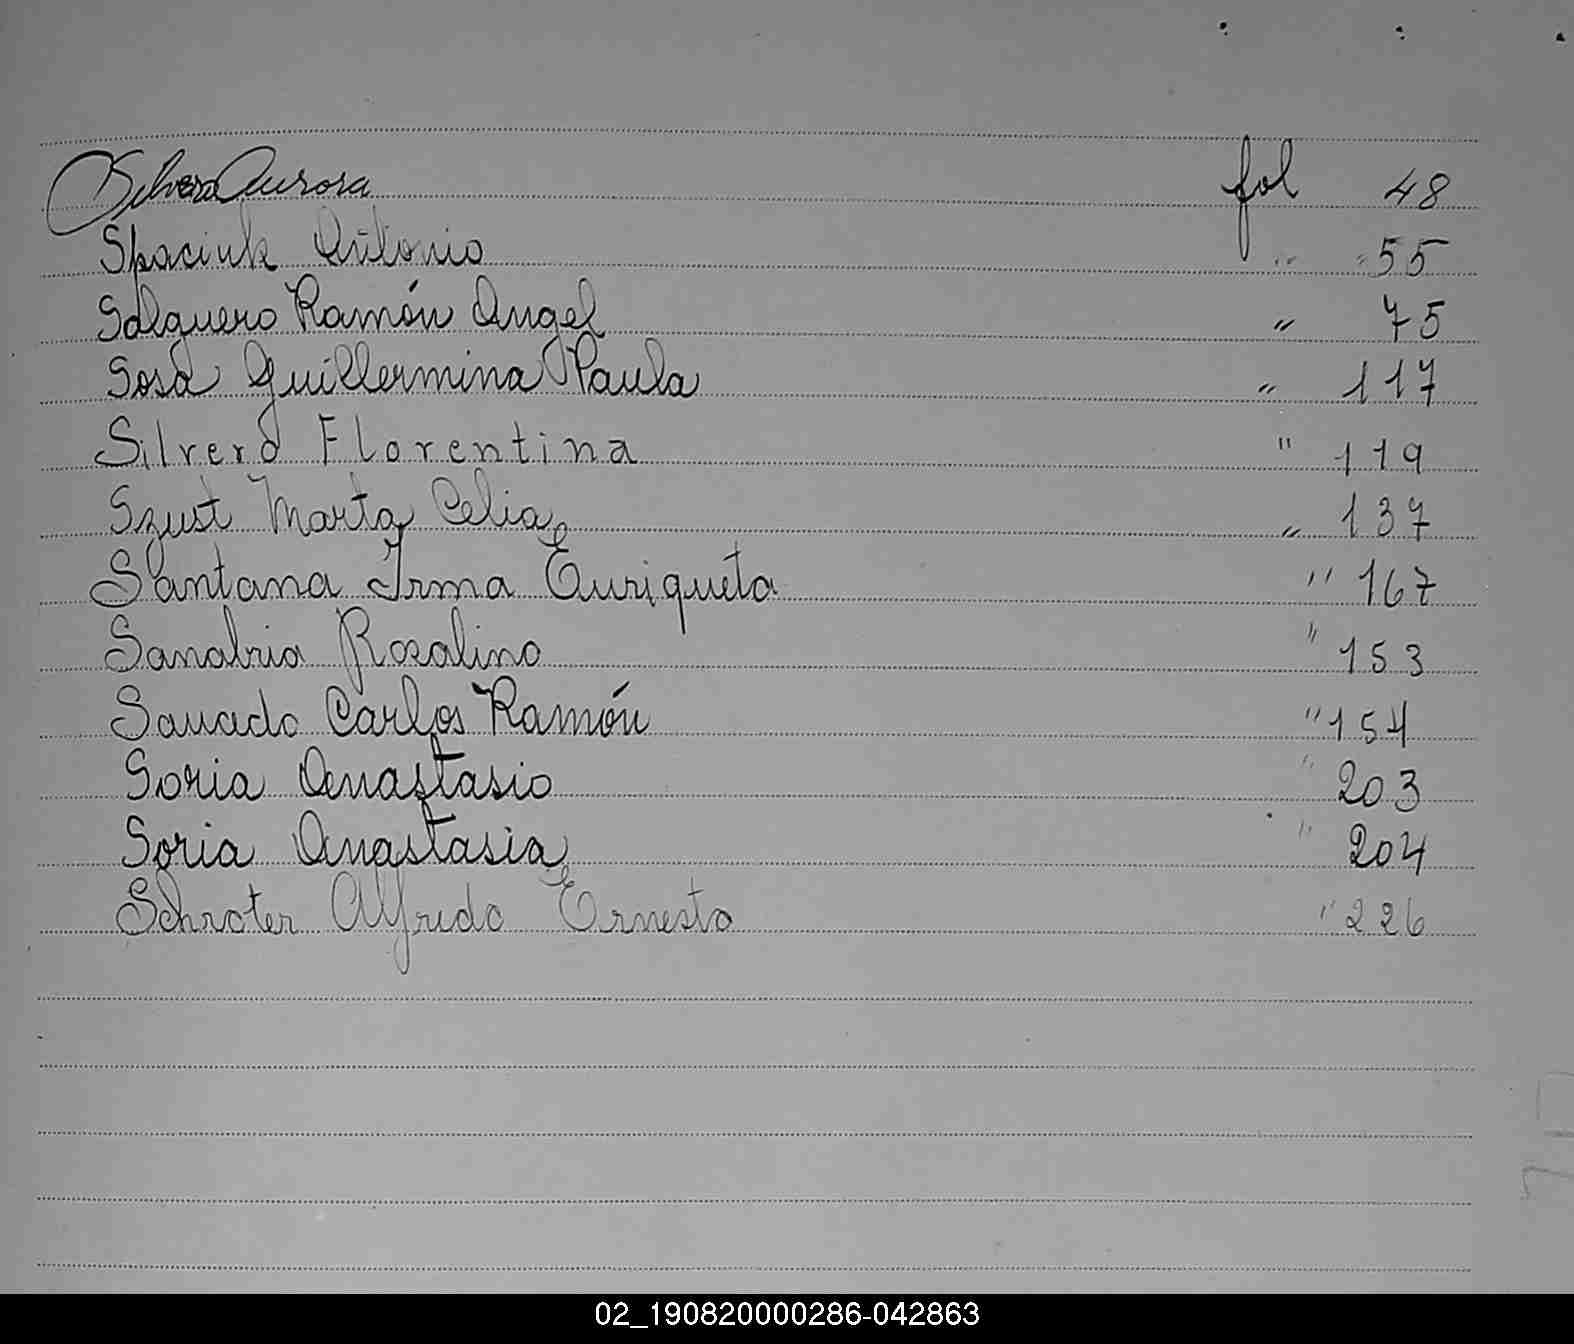 Silvera Aurora fol 48
Spaciuk Antonio " 55
Salguero Ramón Angel " 75
Sosa Guillermina Paula " 117
Silvero Florentina " 119
Szust Marta Celia " 137
Santana Irma Enriqueta " 167
Sanabria Rosalino " 153
Sauado Carlos Ramón " 154
Soria Anastasio " 203
Soria Anastasia " 204
Schroter Alfredo Ernesto " 226
02_190820000286-042863